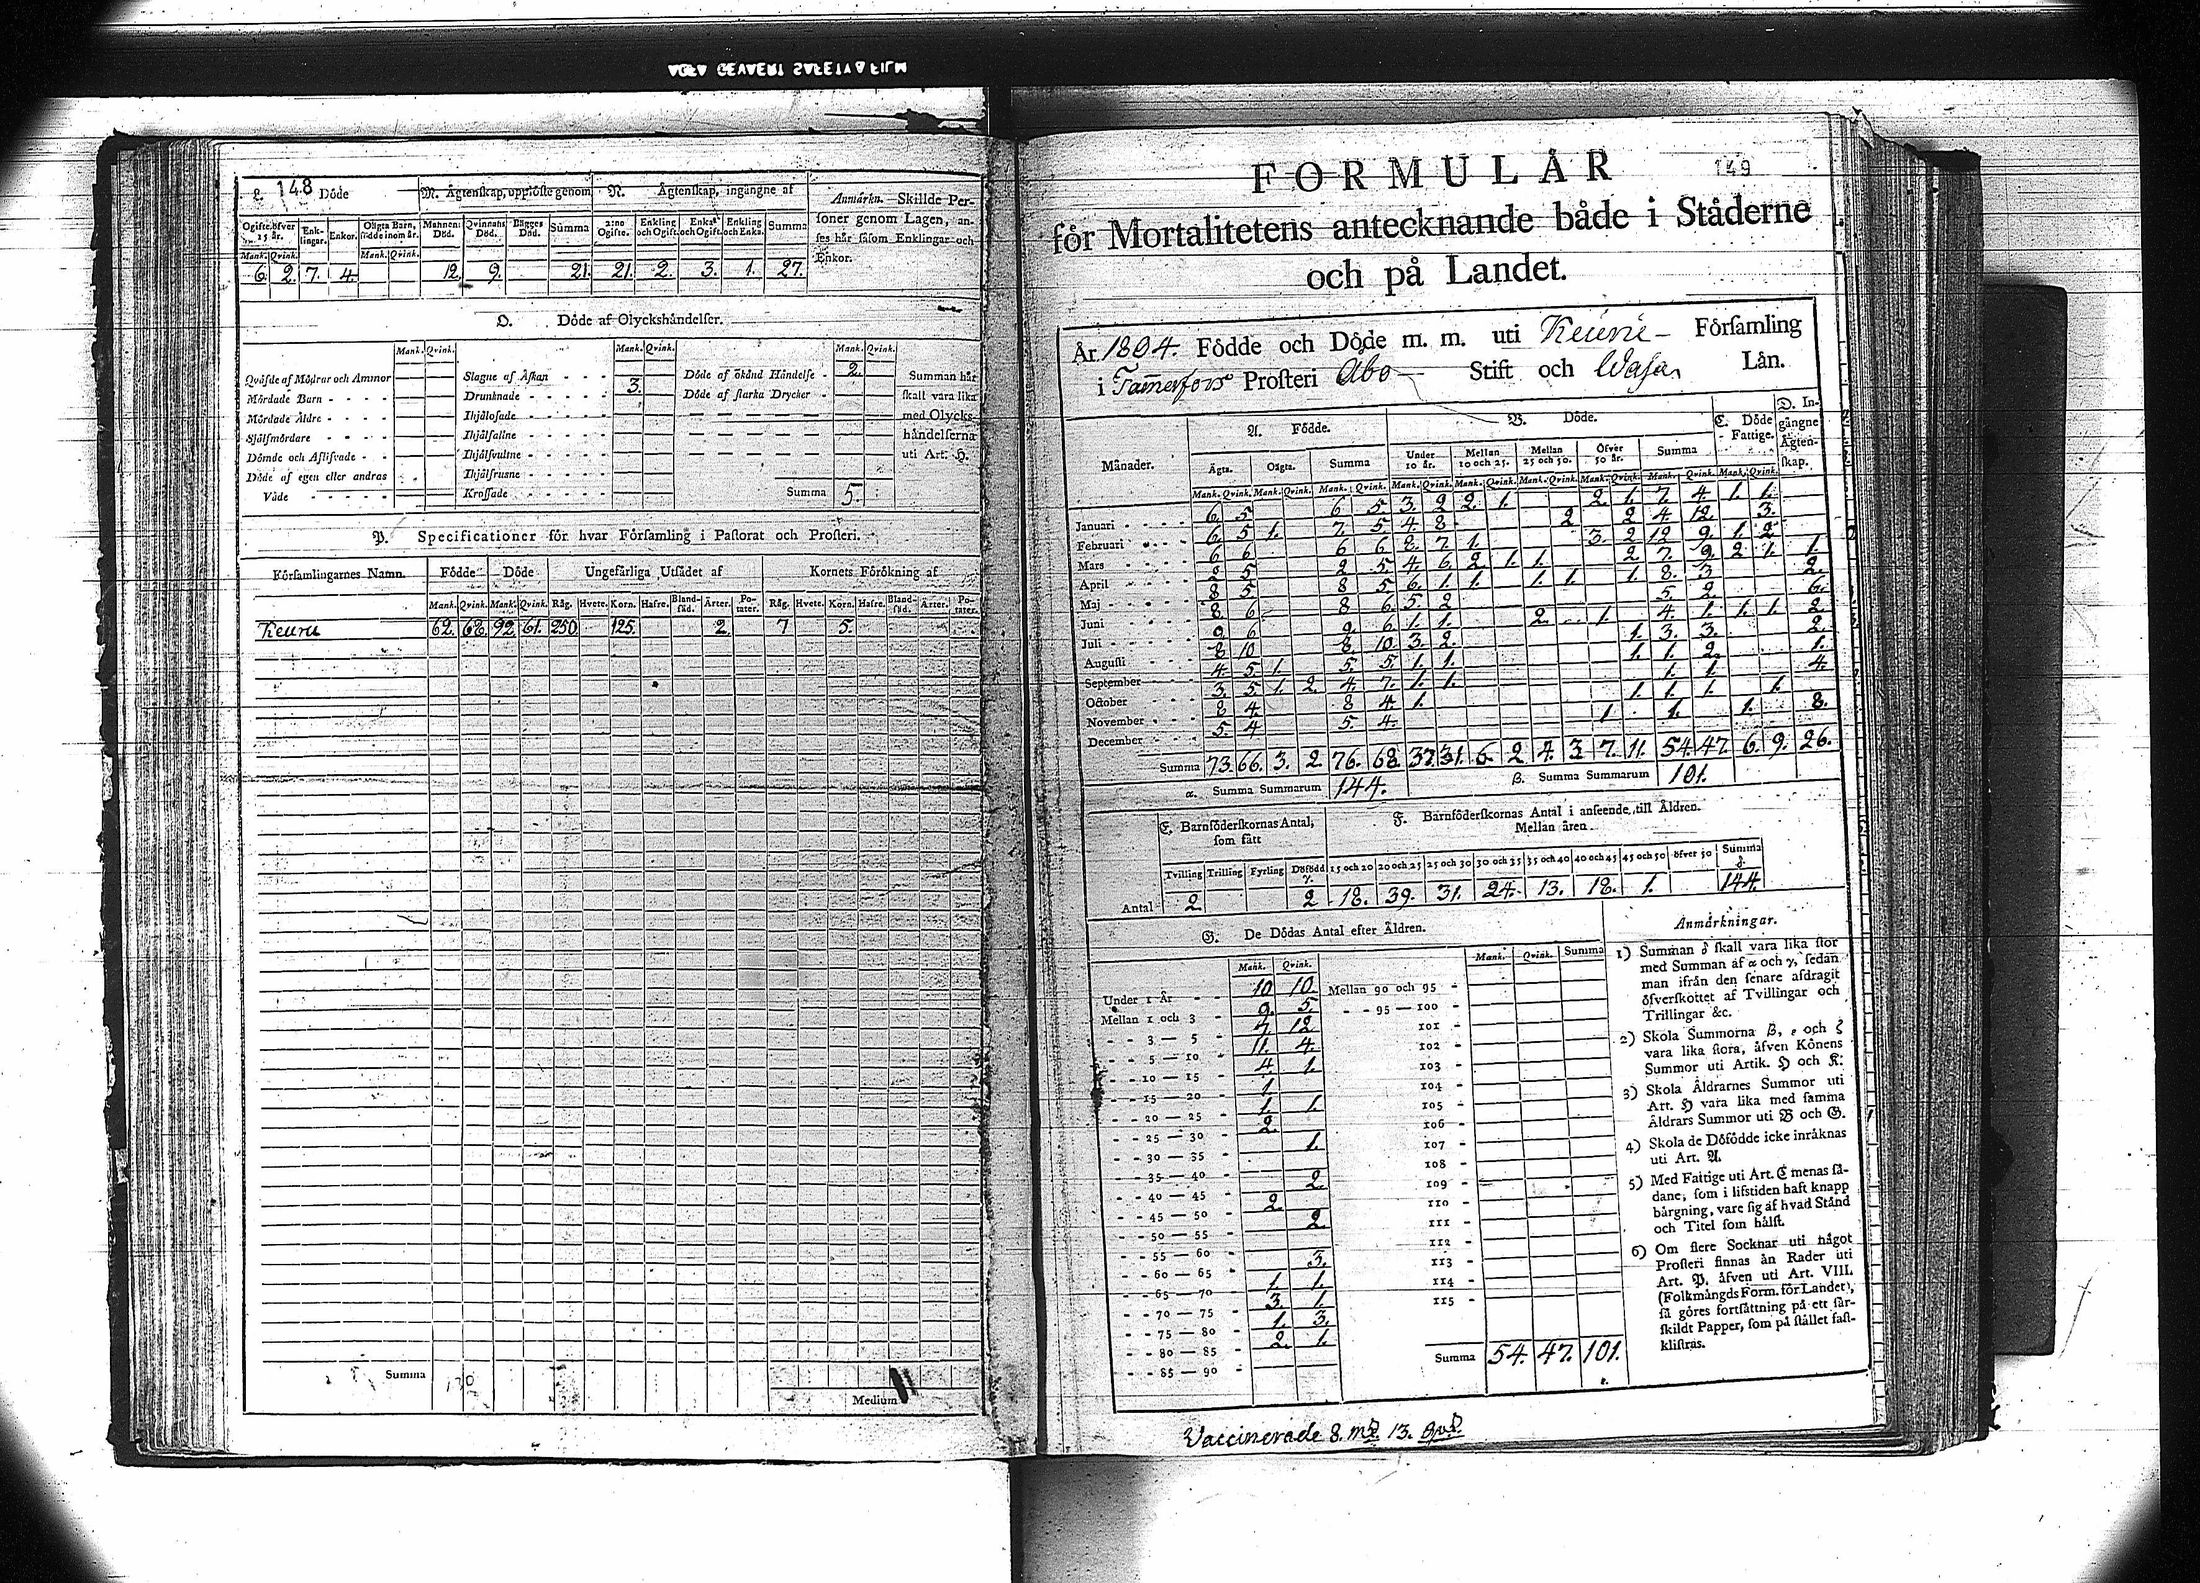 AGFA GEVAERT SAFETY FILM
148
L. Döde
M. Ägtenskap, upplöste genom
N. Ägtenskap, ingångne af
Anmärkn. Skillde Personer genom Lagen, anses här såsom Enklingar och Enkor.
Ogifte öfver 15 år. Enklingar. Enkor. Oägta Barn, födde inom år. Mannens Död. Qvinnans Död. Bägges Död. Summa 2:no Ogifte. Enkling och Ogift. Enka och Ogift. Enkling och Enka. Summa
Mank. Qvink. Mank. Qvink.
6. 2. 7. 4. 12. 9. 21. 21. 2. 3. 1. 27.
O. Döde af Olyckshändelser.
Mank. Qvink. Mank. Qvink. Mank. Qvink.
Qväfde af Mödrar och Ammor
Slagne af Åskan
Döde af okänd Händelse 2.
Summan här
Mördade Barn
Drunknade 3.
Döde af starka Drycker
skall vara lika
Mördade Äldre
Ihjälfrosade
med Olycks-
Självmördare
Ihjälfallne
händelserna
Dömde och Aflifvade
Ihjälsvultne
uti Art. H.
Döde af egen eller andras
Ihjälfrusne
Våde
Krossade
Summa 5.
P. Specificationer för hvar Församling i Pastorat och Prosteri.
Församlingarnes Namn. Födde Döde Ungefärliga Utsädet af Kornets Förökning af
Mank. Qvink. Mank. Qvink. Råg. Hvete. Korn. Hafre. Blandsäd. Ärter. Potater. Råg. Hvete. Korn. Hafre. Blandsäd. Ärter. Potater.
Keuru 62. 68. 92. 61. 250. 125. 2. 7 5.
Summa
Medium
149
FORMULÅR
för Mortalitetens antecknande både i Städerne
och på Landet.
År 1804. Födde och Döde m. m. uti Keuru Församling
i Tamerfors Prosteri Åbo Stift och Wasa Län.
Månader. A. Födde. B. Döde. C. Döde Fattige. D. Ingångne Ägtenskap.
Ägta. Oägta. Summa Under 10 år. Mellan 10 och 25. Mellan 25 och 50. Öfver 50 år. Summa
Mank. Qvink. Mank. Qvink. Mank. Qvink. Mank. Qvink. Mank. Qvink. Mank. Qvink. Mank. Qvink. Mank. Qvink. Mank. Qvink.
Januari 6. 5. 6 5 3. 2 2. 1. 2. 1. 7. 4. 1. 1.
Februari 6. 5 1. 7. 5 4 8 2 2 4. 12. 3.
Mars 6 6 6 6 8. 7. 1. 3. 2 12 9. 1. 2
April 2 5 2 5 4. 6. 2. 1. 1. 2 7. 9. 2 1. 1.
Maj 8 5 8 5 6. 1. 1. 1. 1. 1. 8. 3 2.
Juni 8 6 8 6 5. 2 5. 2. 6.
Juli 9 6 9. 6 1. 1. 2. 1. 4. 1. 1. 1. 2
Augusti 8 10 8. 10. 3. 2. 1. 3. 3. 2.
September 4. 5. 1. 5. 5. 1. 1. 1. 1. 2. 1.
October 3. 5. 1. 2. 4. 7. 1. 1. 1. 1. 4.
November 8 4 8 4 1. 1. 1. 1. 1.
December 5. 4 5. 4. 1. 1. 1. 8.
Summa 73. 66. 3. 2. 76. 68. 37. 31. 6. 2 4. 3. 7. 11. 54. 47. 6. 9. 26.
α. Summa Summarum 144.
β. Summa Summarum 101.
E. Barnföderskornas Antal, som fått
F. Barnföderskornas Antal i anseende till Åldren.
Mellan åren.
Tvilling Trilling Fyrling Dödfödd γ. 15 och 20 20 och 25 25 och 30 30 och 35 35 och 40 40 och 45 45 och 50 öfver 50 Summa δ.
Antal 2 2 18. 39. 31. 24. 13. 18. 1. 144.
G. De Dödas Antal efter Åldren.
Mank. Qvink. Mank. Qvink. Summa
Under 1 År 10 10.
Mellan 1 och 3 9. 5.
3 — 5 7. 12
5 — 10 11. 4.
10 — 15 4 1.
15 — 20 1.
20 — 25 1. 1.
25 — 30 2.
30 — 35 1.
35 — 40
40 — 45 2.
45 — 50 2.
50 — 55 2
55 — 60
60 — 65 3.
65 — 70 1. 1.
70 — 75 3. 1.
75 — 80 1. 3.
80 — 85 2. 1.
85 — 90
Mellan 90 och 95
95 — 100
101
102
103
104
105
106
107
108
109
110
111
112
113
114
115
Summa 54. 47. 101.
ε.
Anmärkningar.
1) Summan δ skall vara lika stor
med Summan af α och γ, sedan
man ifrån den senare afdragit
öfverskottet af Tvillingar och
Trillingar &c.
2) Skola Summorna β, ε och ζ
vara lika stora, äfven Könens
Summor uti Artik. H och K.
3) Skola Åldrarnes Summor uti
Art. H vara lika med samma
Åldrars Summor uti B och G.
4) Skola de Dödfödde icke inräknas
uti Art. A.
5) Med Fattige uti Art. C menas så-
dane, som i lifstiden haft knapp
bärgning, vare sig af hvad Stånd
och Titel som hälst.
6) Om flere Socknar uti något
Prosteri finnas än Rader uti
Art. P. äfven uti Art. VIII.
(Folkmängds Form. för Landet),
så göres fortsättning på ett sär-
skildt Papper, som på stället fast-
klistras.
Vaccinerade 8. mk. 13. qvk.